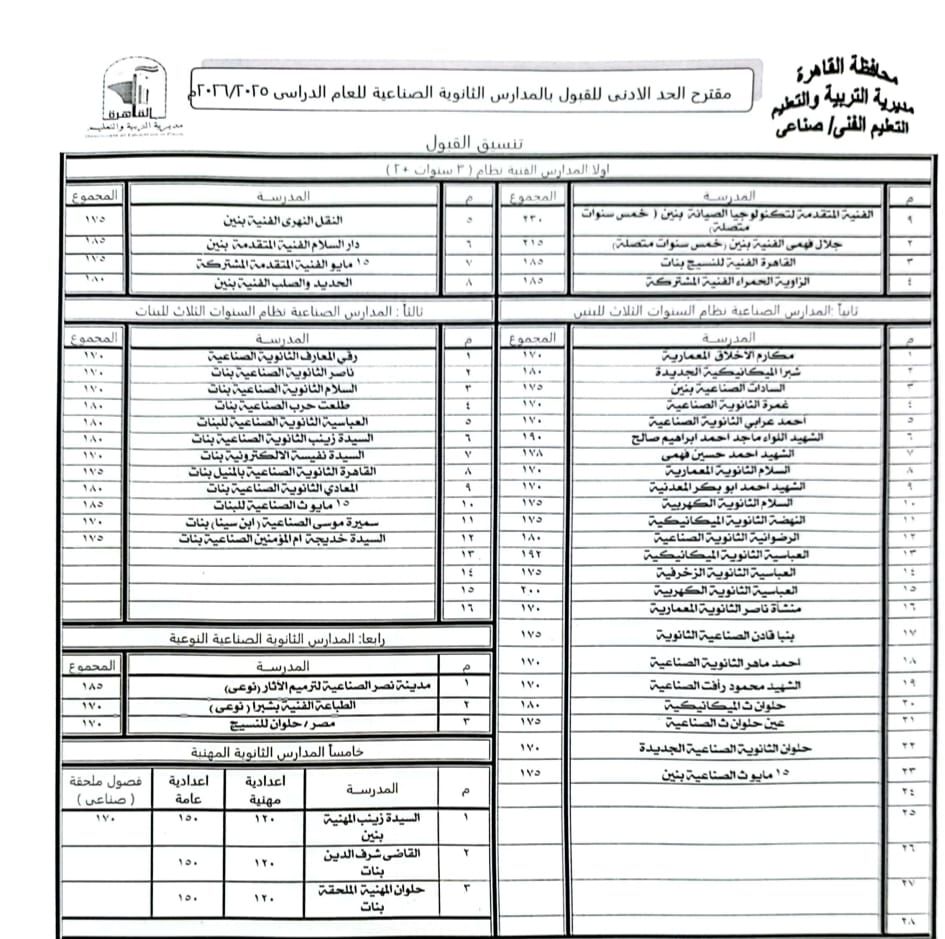 محافظة القاهرة
مديرية التربية والتعليم
التعليم الفنى/ صناعى
القاهرة
مديرية التربية والتعليم
مقترح الحد الادنى للقبول بالمدارس الثانوية الصناعية للعام الدراسى ٢٠٢٦/٢٠٢٥م
تنسيق القبول
اولا المدارس الفنية نظام ( ٣ سنوات +٢ )
م المدرسة المجموع
٩ الفنية المتقدمة لتكنولوجيا الصيانة بنين ( خمس سنوات متصلة) ٢٣٠
٢ جلال فهمى الفنية بنين (خمس سنوات متصلة) ٢١٥
٣ القاهرة الفنية للنسيج بنات ١٨٥
٤ الزاوية الحمراء الفنية المشتركة ١٨٥
م المدرسة المجموع
٥ النقل النهرى الفنية بنين ١٧٥
٦ دار السلام الفنية المتقدمة بنين ١٨٥
٧ ١٥ مايو الفنية المتقدمة المشتركة ١٧٥
٨ الحديد والصلب الفنية بنين ١٨٠
ثانياً :المدارس الصناعية نظام السنوات الثلاث للبنين
م المدرسة المجموع
١ مكارم الأخلاق المعمارية ١٧٠
٢ شبرا الميكانيكية الجديدة ١٨٠
٣ السادات الصناعية بنين ١٧٥
٤ غمرة الثانوية الصناعية ١٧٠
٥ أحمد عرابي الثانوية الصناعية ١٧٠
٦ الشهيد اللواء ماجد احمد ابراهيم صالح ١٩٠
٧ الشهيد احمد حسين فهمى ١٧٨
٨ السلام الثانوية المعمارية ١٧٠
٩ الشهيد احمد ابو بكر المعدنية ١٧٠
١٠ السلام الثانوية الكهربية ١٧٥
١١ النهضة الثانوية الميكانيكية ١٧٥
١٢ الرضوانية الثانوية الصناعية ١٨٠
١٣ العباسية الثانوية الميكانيكية ١٩٢
١٤ العباسية الثانوية الزخرفية ١٧٥
١٥ العباسية الثانوية الكهربية ٢٠٠
١٦ منشأة ناصر الثانوية المعمارية ١٧٠
١٧ بنبا قادن الصناعية الثانوية ١٧٥
١٨ احمد ماهر الثانوية الصناعية ١٧٠
١٩ الشهيد محمود رأفت الصناعية ١٧٠
٢٠ حلوان ث الميكانيكية ١٨٠
٢١ عين حلوان ث الصناعية ١٧٥
٢٢ حلوان الثانوية الصناعية الجديدة ١٧٠
٢٣ ١٥ مايو ث الصناعية بنين ١٧٥
٢٤
٢٥
٢٦
٢٧
٢٨
ثالثاً : المدارس الصناعية نظام السنوات الثلاث للبنات
م المدرسة المجموع
١ رقي المعارف الثانوية الصناعية ١٧٠
٢ ناصر الثانوية الصناعية بنات ١٧٠
٣ السلام الثانوية الصناعية بنات ١٧٠
٤ طلعت حرب الصناعية بنات ١٨٠
٥ العباسية الثانوية الصناعية للبنات ١٨٠
٦ السيدة زينب الثانوية الصناعية بنات ١٨٠
٧ السيدة نفيسة الالكترونية بنات ١٧٠
٨ القاهرة الثانوية الصناعية بالمنيل بنات ١٧٥
٩ المعادي الثانوية الصناعية بنات ١٨٠
١٠ ١٥ مايو ث الصناعية للبنات ١٨٥
١١ سميرة موسى الصناعية (ابن سينا) بنات ١٧٠
١٢ السيدة خديجة ام المؤمنين الصناعية بنات ١٧٥
١٣
١٤
١٥
١٦
رابعا: المدارس الثانوية الصناعية النوعية
م المدرسة المجموع
١ مدينة نصر الصناعية لترميم الآثار (نوعى) ١٨٥
٢ الطباعة الفنية بشبرا ( نوعى ) ١٧٠
٣ مصر / حلوان للنسيج ١٧٠
خامساً المدارس الثانوية المهنية
م المدرسة اعدادية مهنية اعدادية عامة فصول ملحقة ( صناعى )
١ السيدة زينب المهنية بنين ١٢٠ ١٥٠ ١٧٠
٢ القاضى شرف الدين بنات ١٢٠ ١٥٠
٣ حلوان المهنية الملحقة بنات ١٢٠ ١٥٠